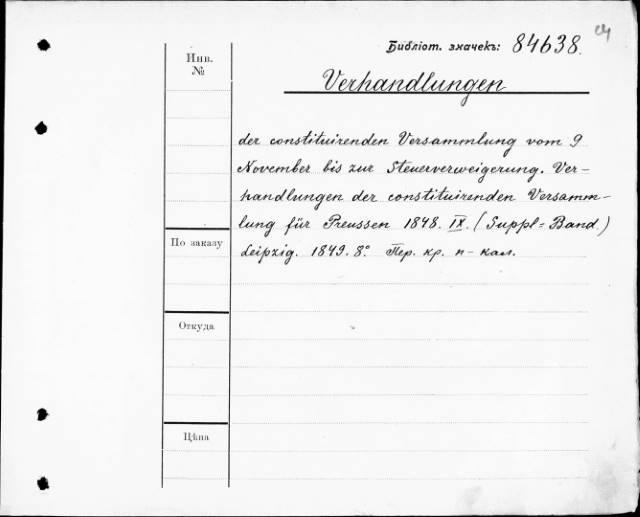 Библіот. значекъ: 84638.
Инв.
№
Verhandlungen
der constituirenden Versammlung vom 9
November bis zur Steuerverweigerung. Ver-
handlungen der constituirenden Versamm-
lung für Preussen 1848. IX. (Suppl=Band.)
Leipzig. 1849. 8º. Пер. кр. п-кал.
По заказу
Откуда
Цѣна